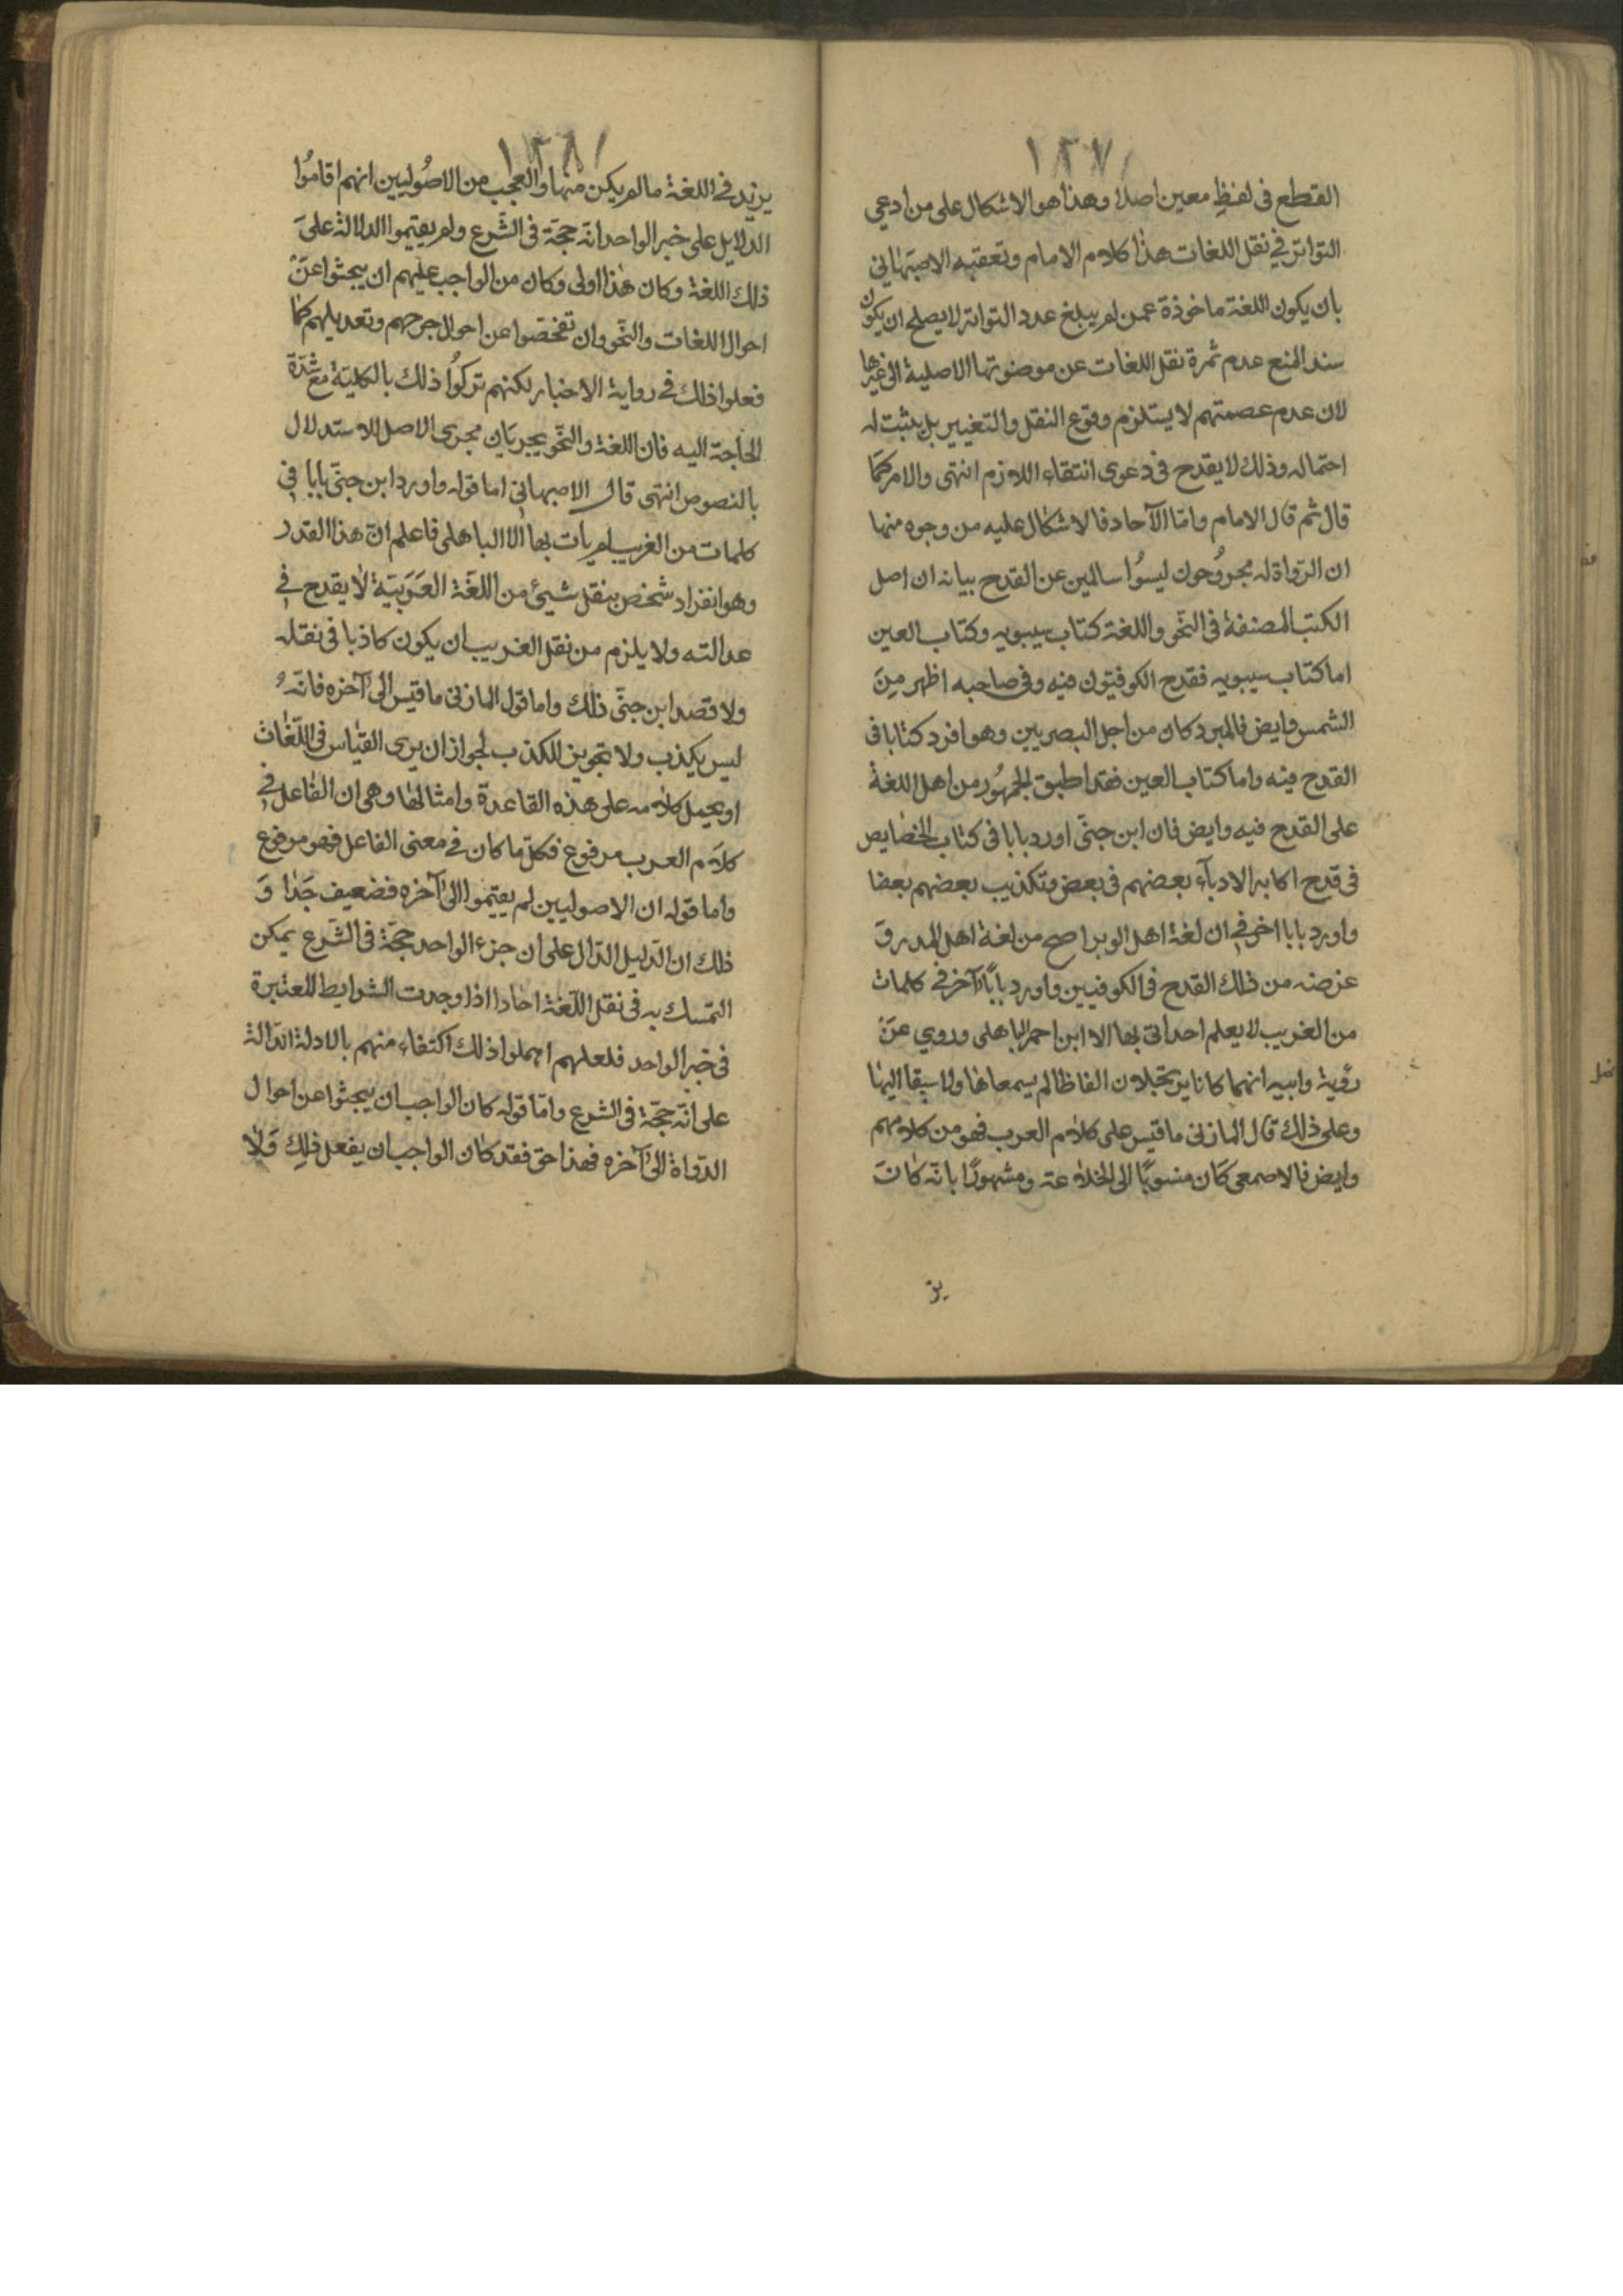 ١٢٧
القطع فى لفظٍ معين اصلا وهذا هو الاشكال على من ادعى
التواتر فى نقل اللغات هذا كلام الامام وتعقبه الاصبهانى
بان يكون اللغة ماخوذة عمن لم يبلغ عدد التواتر لا يصلح ان يكون
سند المنع عدم ثمرة نقل اللغات عن موضوعتها الاصلية الى غيرها
لان عدم عصمتهم لا يستلزم وقوع النقل والتغيير بل يثبت له
احتماله وذلك لا يقدح فى دعوى انتفاء اللازم انتهى والامر كما
قال ثم قال الامام وامّا الآحاد فالاشكال عليه من وجوه منها
ان الرّواة له مجروُحون ليسوُا سالمين عن القدح بيانه ان اصل
الكتب المصنفة فى النحّو واللغة كتاب سيبويه وكتاب العين
اما كتاب سيبويه فقدح الكوفيّون فيه وفى صاحبه اظهر مِنَ
الشمس وايض فالمبرد كان من اجل البصريين وهو افرد كتابا فى
القدح فيه واما كتاب العين فقد اطبق الجمهُور من اهل اللغة
على القدح فيه وايض فان ابن جنّى اورد بابا فى كتاب الخصايص
فى قدح اكابر الادبآء بعضهم فى بعض وتكذيب بعضهم بعضا
واورد بابا اخر فى ان لغة اهل الوبر اصح من لغة اهل المدر وَ
غرضه من ذلك القدح فى الكوفيين واورد بابًا آخر فى كلمات
من الغريب لا يعلم احد اتى بها الا ابن احمر الباهلى وروي عَنْ
رؤبة وابيه انهما كانا يرتجلان الفاظا لم يسمعاها ولا سبقا اليها
وعلى ذلك قال المازنى ما قيس على كلام العرب فهو من كلامهم
وايض فالاصمعى كَان منسوبًا الى الخلاعة ومشهورًا بانّه كانَ
يز
١٢٨
يزيد فى اللغة ما لم يكن منها والعجب من الاصُوليين انهم اقامُوا
الدلايل على خبر الواحد انّه حجّة فى الشّرع ولم يقيموا الدلالة علىَ
ذلك اللغة وكان هٰذا اولى وكان من الواجب عليهم ان يبحثوا عَنْ
احوال اللغات والنحّو وان تفحّصوا عن احوال جرحهم وتعديلهم كما
فعلوا ذلك فى رواية الاخبار لكنهم تركوُا ذلك بالكليّة مع شدّة
الحاجة اليه فان اللغة والنحّو يجريَان مجرى الاصل للاستدلال
بالنصوص انتهى قال الاصبهانى اما قوله واورد ابن جنّى بابا فى
كلمات من الغريب لم يات بها الا الباهلى فاعلم انّ هذا القدر
وهو انفراد شخص بنقل شيئ من اللغَة العَرَبيّة لا يقدح فى
عدالته ولا يلزم من نقل الغريب ان يكون كاذبا فى نقله
ولا قصد ابن جنّى ذلك واما قول المازنى ما قيس الى آخره فانّه
ليس بكذب ولا تجويز للكذب لجواز ان يرى القياس فى اللّغات
او يحمل كلامه على هذه القاعدة وامثالها وهى ان الفاعل فى
كلاَم العرب مرفوع فكلّ ما كان فى معنى الفاعل فهو مرفوع
واما قوله ان الاصوليين لم يقيموا الى آخره فضعيف جَدا وَ
ذلك ان الدّليل الدّال على ان جزء الواحد حجّة فى الشّرع يمكن
التمسك به فى نقل اللّغة احادا اذا وجدت الشرايط المعتبرة
فى خبر الواحد فلعلهم اهملوا ذلك اكتفاء منهم بالادلة الدّالة
على انّه حجّة فى الشرع وامّا قوله كان الواجب ان يبحثوا عن احوال
الرّواة الى آخره فهذا حق فقد كان الواجب ان يفعل ذلِك وَلا